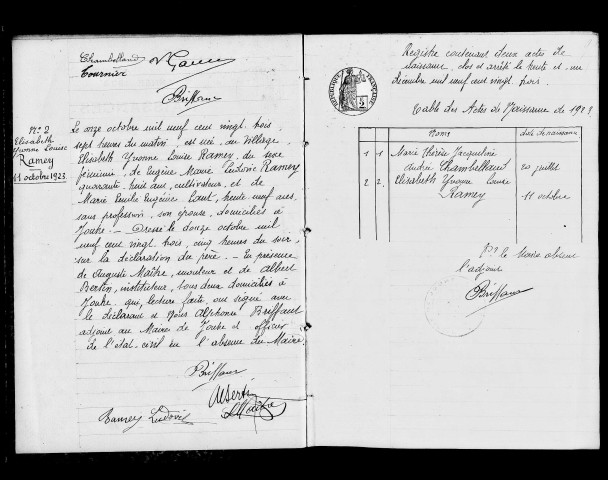 Chambelland
Tournier
Briffaut
No 2
Elisabeth
Yvonne Louise
Ramey
11 octobre 1923.
Le onze octobre mil neuf cent vingt trois,
sept heures du matin, est née, au village,
Elisabeth Yvonne Louise Ramey, du sexe
féminin, de Eugène Marie Ludovic Ramey
quarante huit ans, cultivateur, et de
Marie Emilie Eugénie, trente neuf ans,
sans profession, son épouse, domiciliés à
Dressé le douze octobre mil
neuf cent vingt trois, cinq heures du soir,
sur la déclaration du père. En présence
de Auguste Maître, et de Albert
Bertin, instituteur, tous deux domiciliés à
qui, lecture faite, ont signé avec
le déclarant et Nous Alphonse Briffaut
adjoint au Maire de et officier
de l'état-civil en l'absence du Maire.
Briffaut
A Bertin
A Maître
Ramey Ludovic
Registre contenant deux actes de
naissance, clos et arrêté le trente et un
décembre mil neuf cent vingt trois.
RÉPUBLIQUE FRANÇAISE
Table des Actes de Naissance de 1923
Noms
date de naissance
1 1 Marie Thérèse Jacqueline
Andrée Chambelland 20 juillet
2 2 Elisabeth Yvonne Louise
Ramey 11 octobre
Pr le Maire absent
l'adjoint
Briffaut